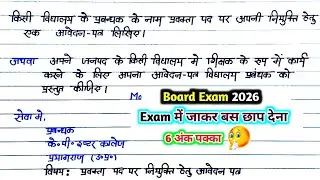 किसी विद्यालय के प्रबन्धक के नाम प्रवक्ता पद पर अपनी नियुक्ति हेतु
एक आवेदन-पत्र लिखिए।
अथवा अपने जनपद के किसी विद्यालय में शिक्षक के रूप में कार्य
करने के लिए अपना आवेदन-पत्र विद्यालय प्रबंधक को
प्रस्तुत कीजिए।
Mo
Board Exam 2026
Exam में जाकर बस छाप देना
6 अंक पक्का
सेवा में,
प्रबन्धक
के० पी० इण्टर कालेज
प्रयागराज (उ०प्र०)
विषय: प्रवक्ता पद पर नियुक्ति हेतु आवेदन पत्र